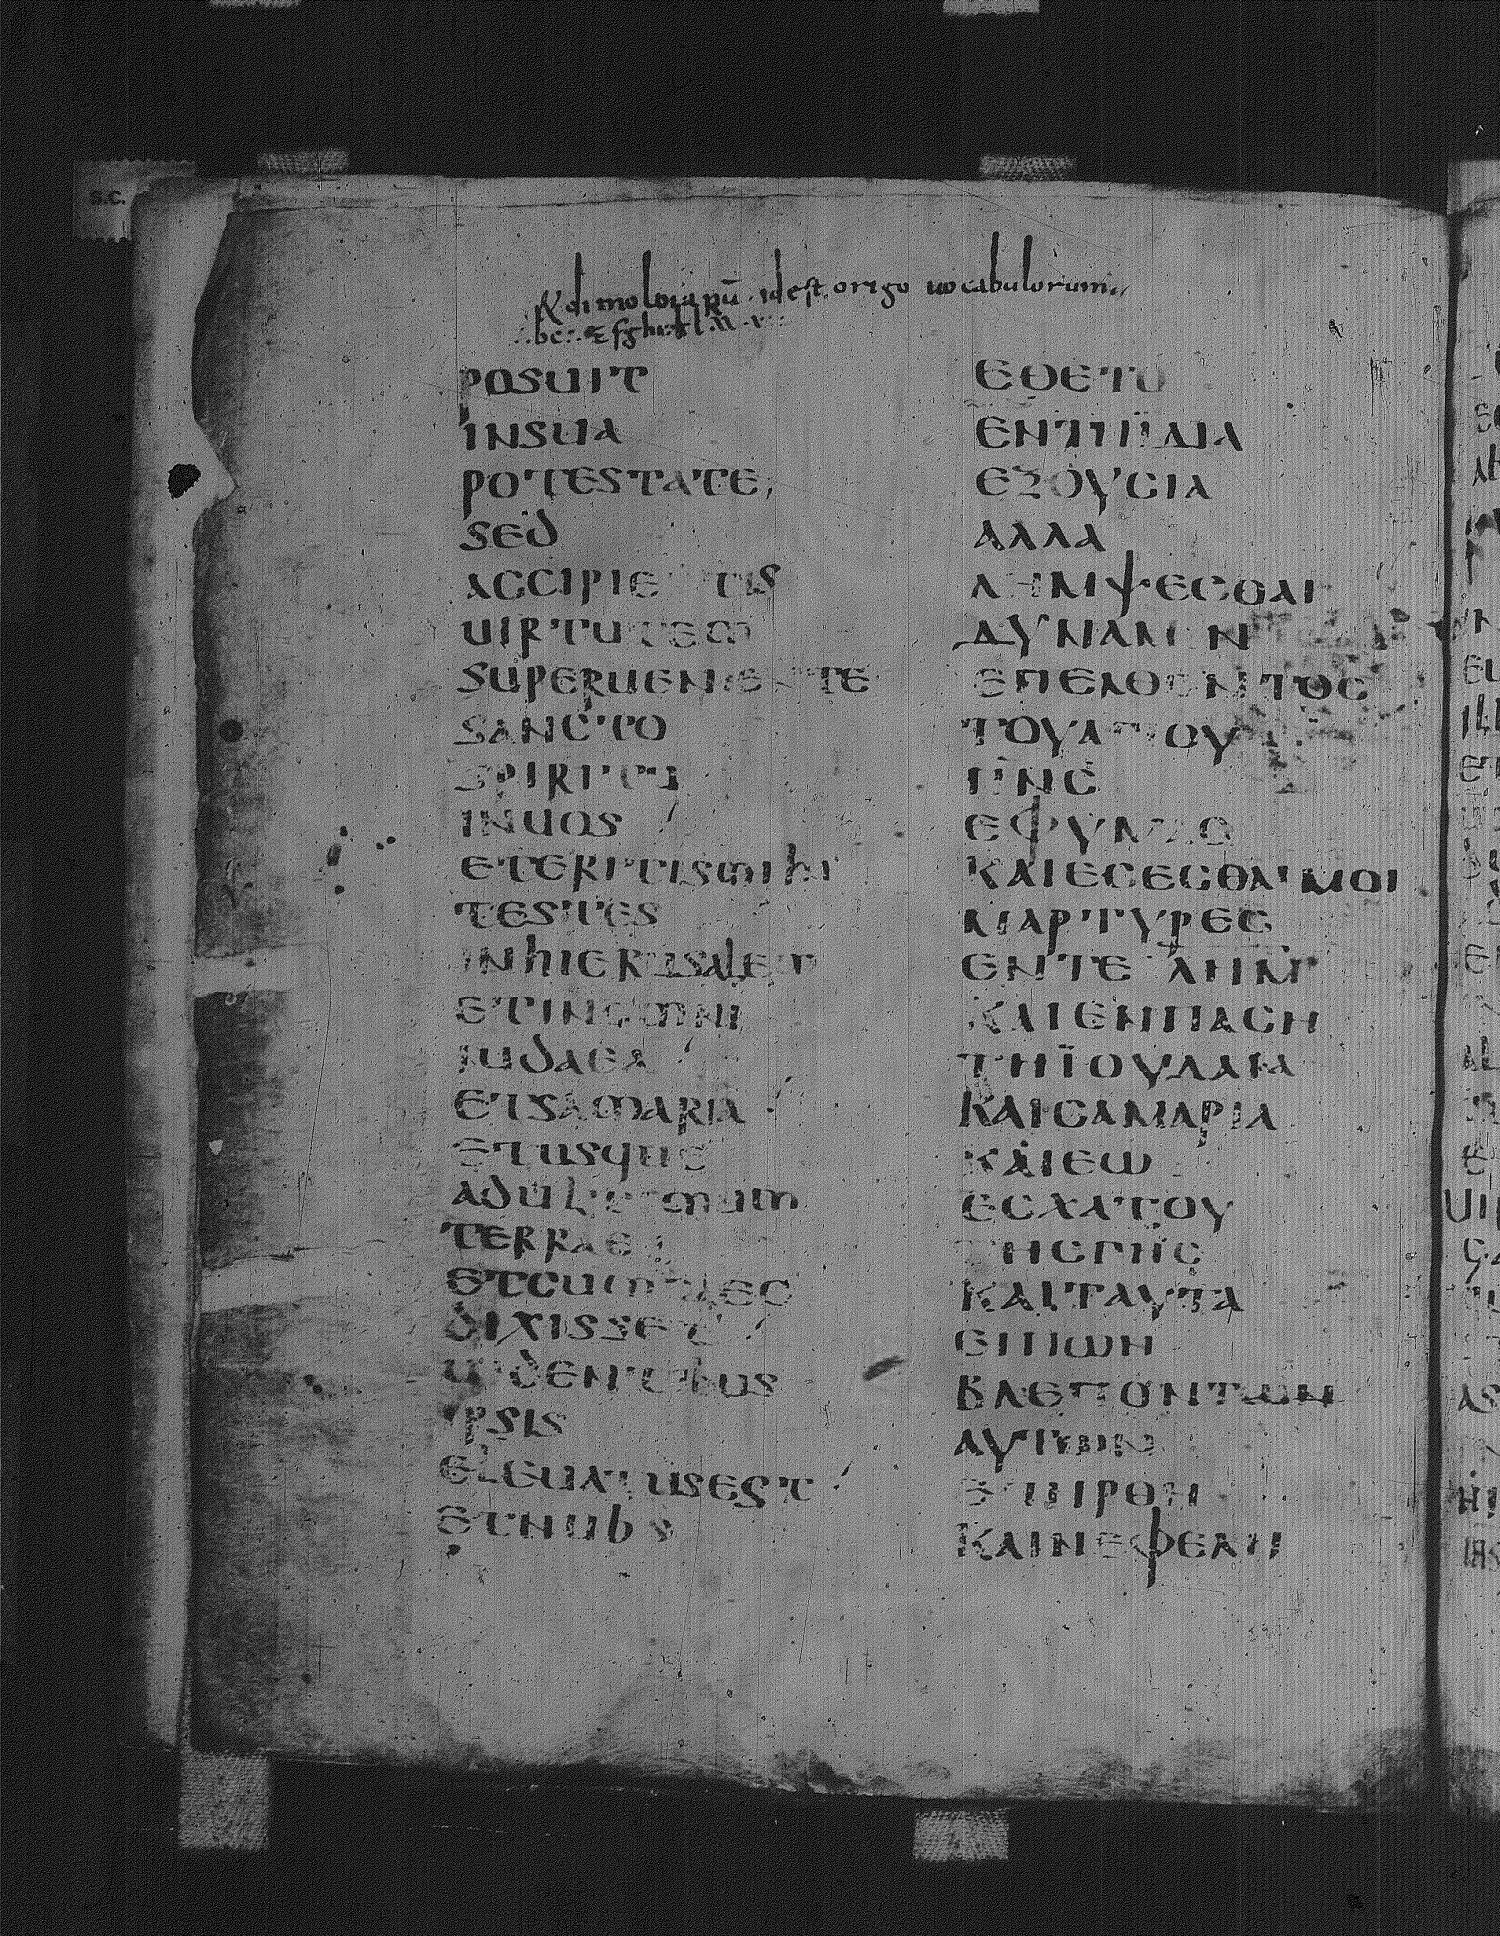 &dimoloiarū · idest origo uocabulorum
POSUIT
INSUA
POTESTATE
SED
ACCIPIETIS
UIRTUTEM
SUPERUENIENTE
SANCTO
SPIRITU
INUOS
ETERITISMIHI
TESTES
INHIERUSALEM
ETINOMNI
IUDAEA
ETSAMARIA
ETUSQUE
ADULTIMUM
TERRAE
ETCUMHAEC
DIXISSET
UIDENTIBUS
IPSIS
ELEUATUSEST
ETNUBS
ΕΘΕΤΟ
ΕΝΤΗΙΔΙΑ
ΕΞΟΥCΙΑ
ΑΛΛΑ
ΛΗΜΨΕCΘΑΙ
ΔΥΝΑΜΙΝ
ΕΠΕΛΘΟΝΤΟC
ΤΟΥΑΓΙΟΥ
ΠΝC
ΕΦΥΜΑC
ΚΑΙΕCΕCΘΑΙΜΟΙ
ΜΑΡΤΥΡΕC
ΕΝΤΕ ΛΗΜ
ΚΑΙΕΝΠΑCΗ
ΤΗΪΟΥΔΑΙΑ
ΚΑΙCΑΜΑΡΙΑ
ΚΑΙΕΩ
ΕCΧΑΤΟΥ
ΤΗCΓΗC
ΚΑΙΤΑΥΤΑ
ΕΙΠΩΝ
ΒΛΕΠΟΝΤΩΝ
ΑΥΤΩΝ
ΕΠΗΡΘΗ
ΚΑΙΝΕΦΕΛΗ